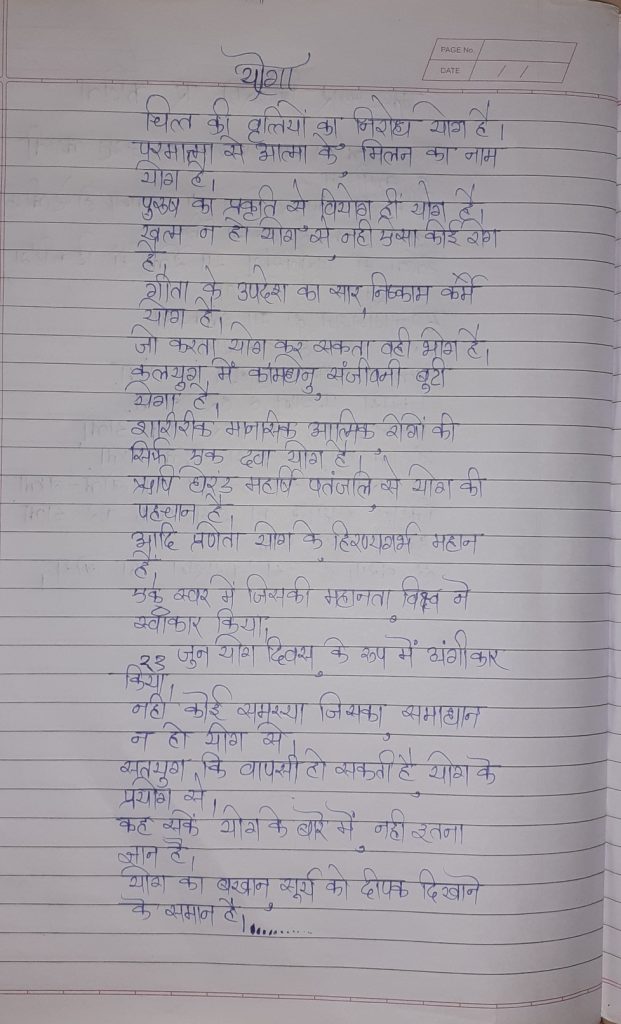 PAGE No.
DATE / /
योगा
चित्त की वृत्तियों का निरोध योग है।
परमात्मा से आत्मा के, मिलन का नाम
योग है।
पुरुष का प्रकृति से वियोग ही योग है।
खत्म न हो योग से, नही एसा कोई रोग
है।
गीता के उपदेश का सार, निष्काम कर्म
योग है।
जो करता योग कर सकता वही भोग है।
कलयुग में कामधेनु, संजीवनी बुटी
योगा है।
शारीरीक मानसिक आत्मिक रोगों की
सिर्फ एक दवा योग है।
ऋषि महर्षि पतंजलि, से योग की
पहचान है।
आदि प्रणेता योग के, हिरण्यगर्भ महान
है।
एक स्वर में जिसकी महानता, विश्व ने
स्वीकार किया,
जुन योग दिवस, के रूप में अंगीकार
किया।
नही कोई समस्या जिसका, समाधान
न हो योग से।
सतयुग कि वापसी हो सकती है, योग के
प्रयोग से।
कह सकें योग के बारे में, नही इतना
ज्ञान है।
योग का बखान, सूर्य को दीपक दिखाने
के समान है।..........